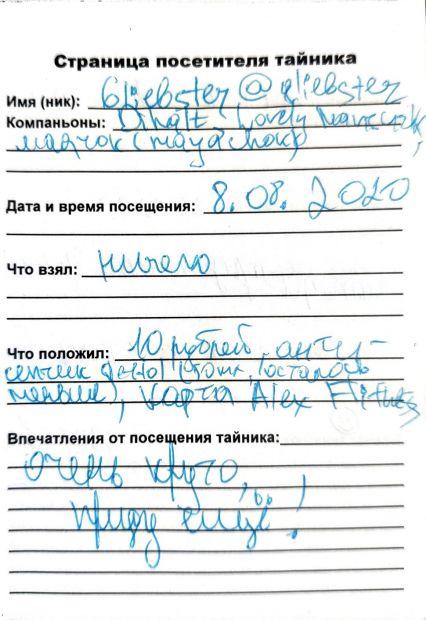 Страница посетителя тайника
Имя (ник): Gliebster @gliebster
Компаньоны: Dihalt, Lovely
маячок (mayachok)
Дата и время посещения: 8.08.2020
Что взял: ничего
Что положил: 10 рублей, анти-
септик осталось
меньше), карта Alex
Впечатления от посещения тайника:
Очень круто,
приду ещё!